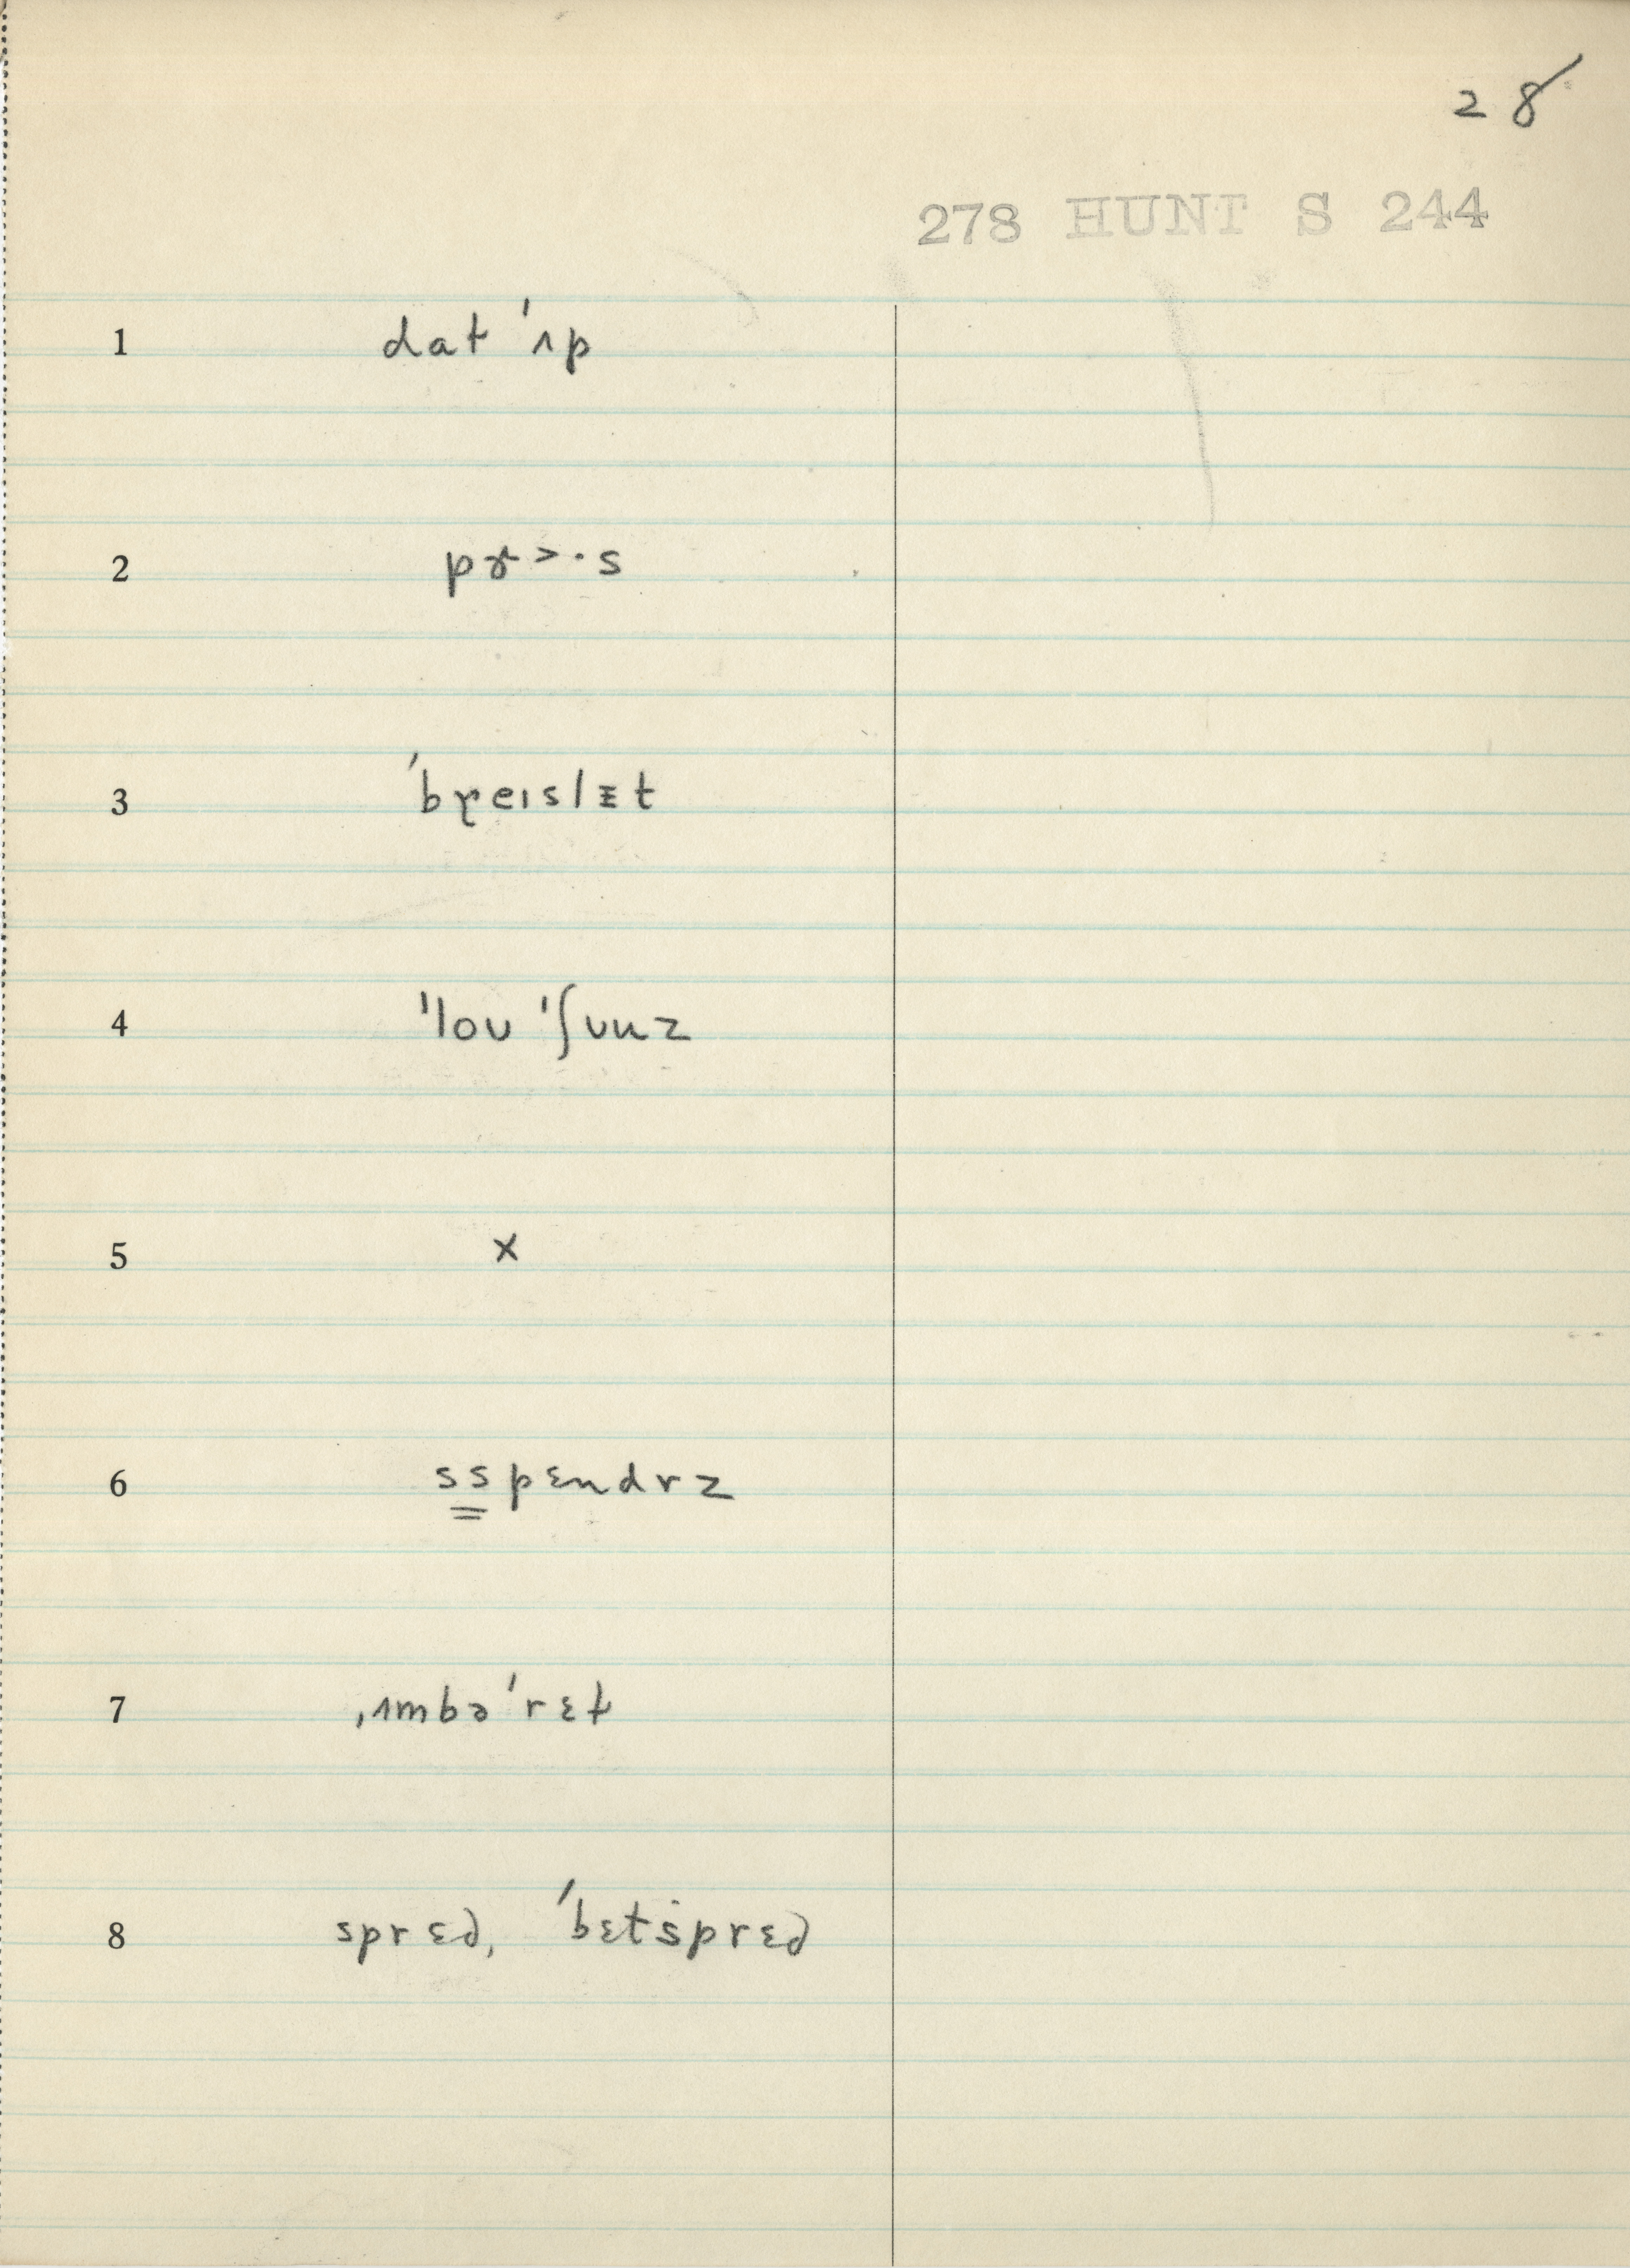 28
278 HUNT S 244
1 dat 'ʌp
2 pɚ>·s
3 'bɼeɪslᵻt
4 'loʊ 'ʃuuz
5 x
6 sspɛndrz
7 ˌʌmbə'rɛt
8 sprɛd, 'bɛtsprɛd